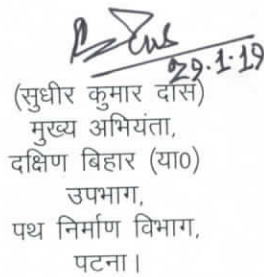 29.1.19
(सुधीर कुमार दास)
मुख्य अभियंता,
दक्षिण बिहार (या०)
उपभाग,
पथ निर्माण विभाग,
पटना।